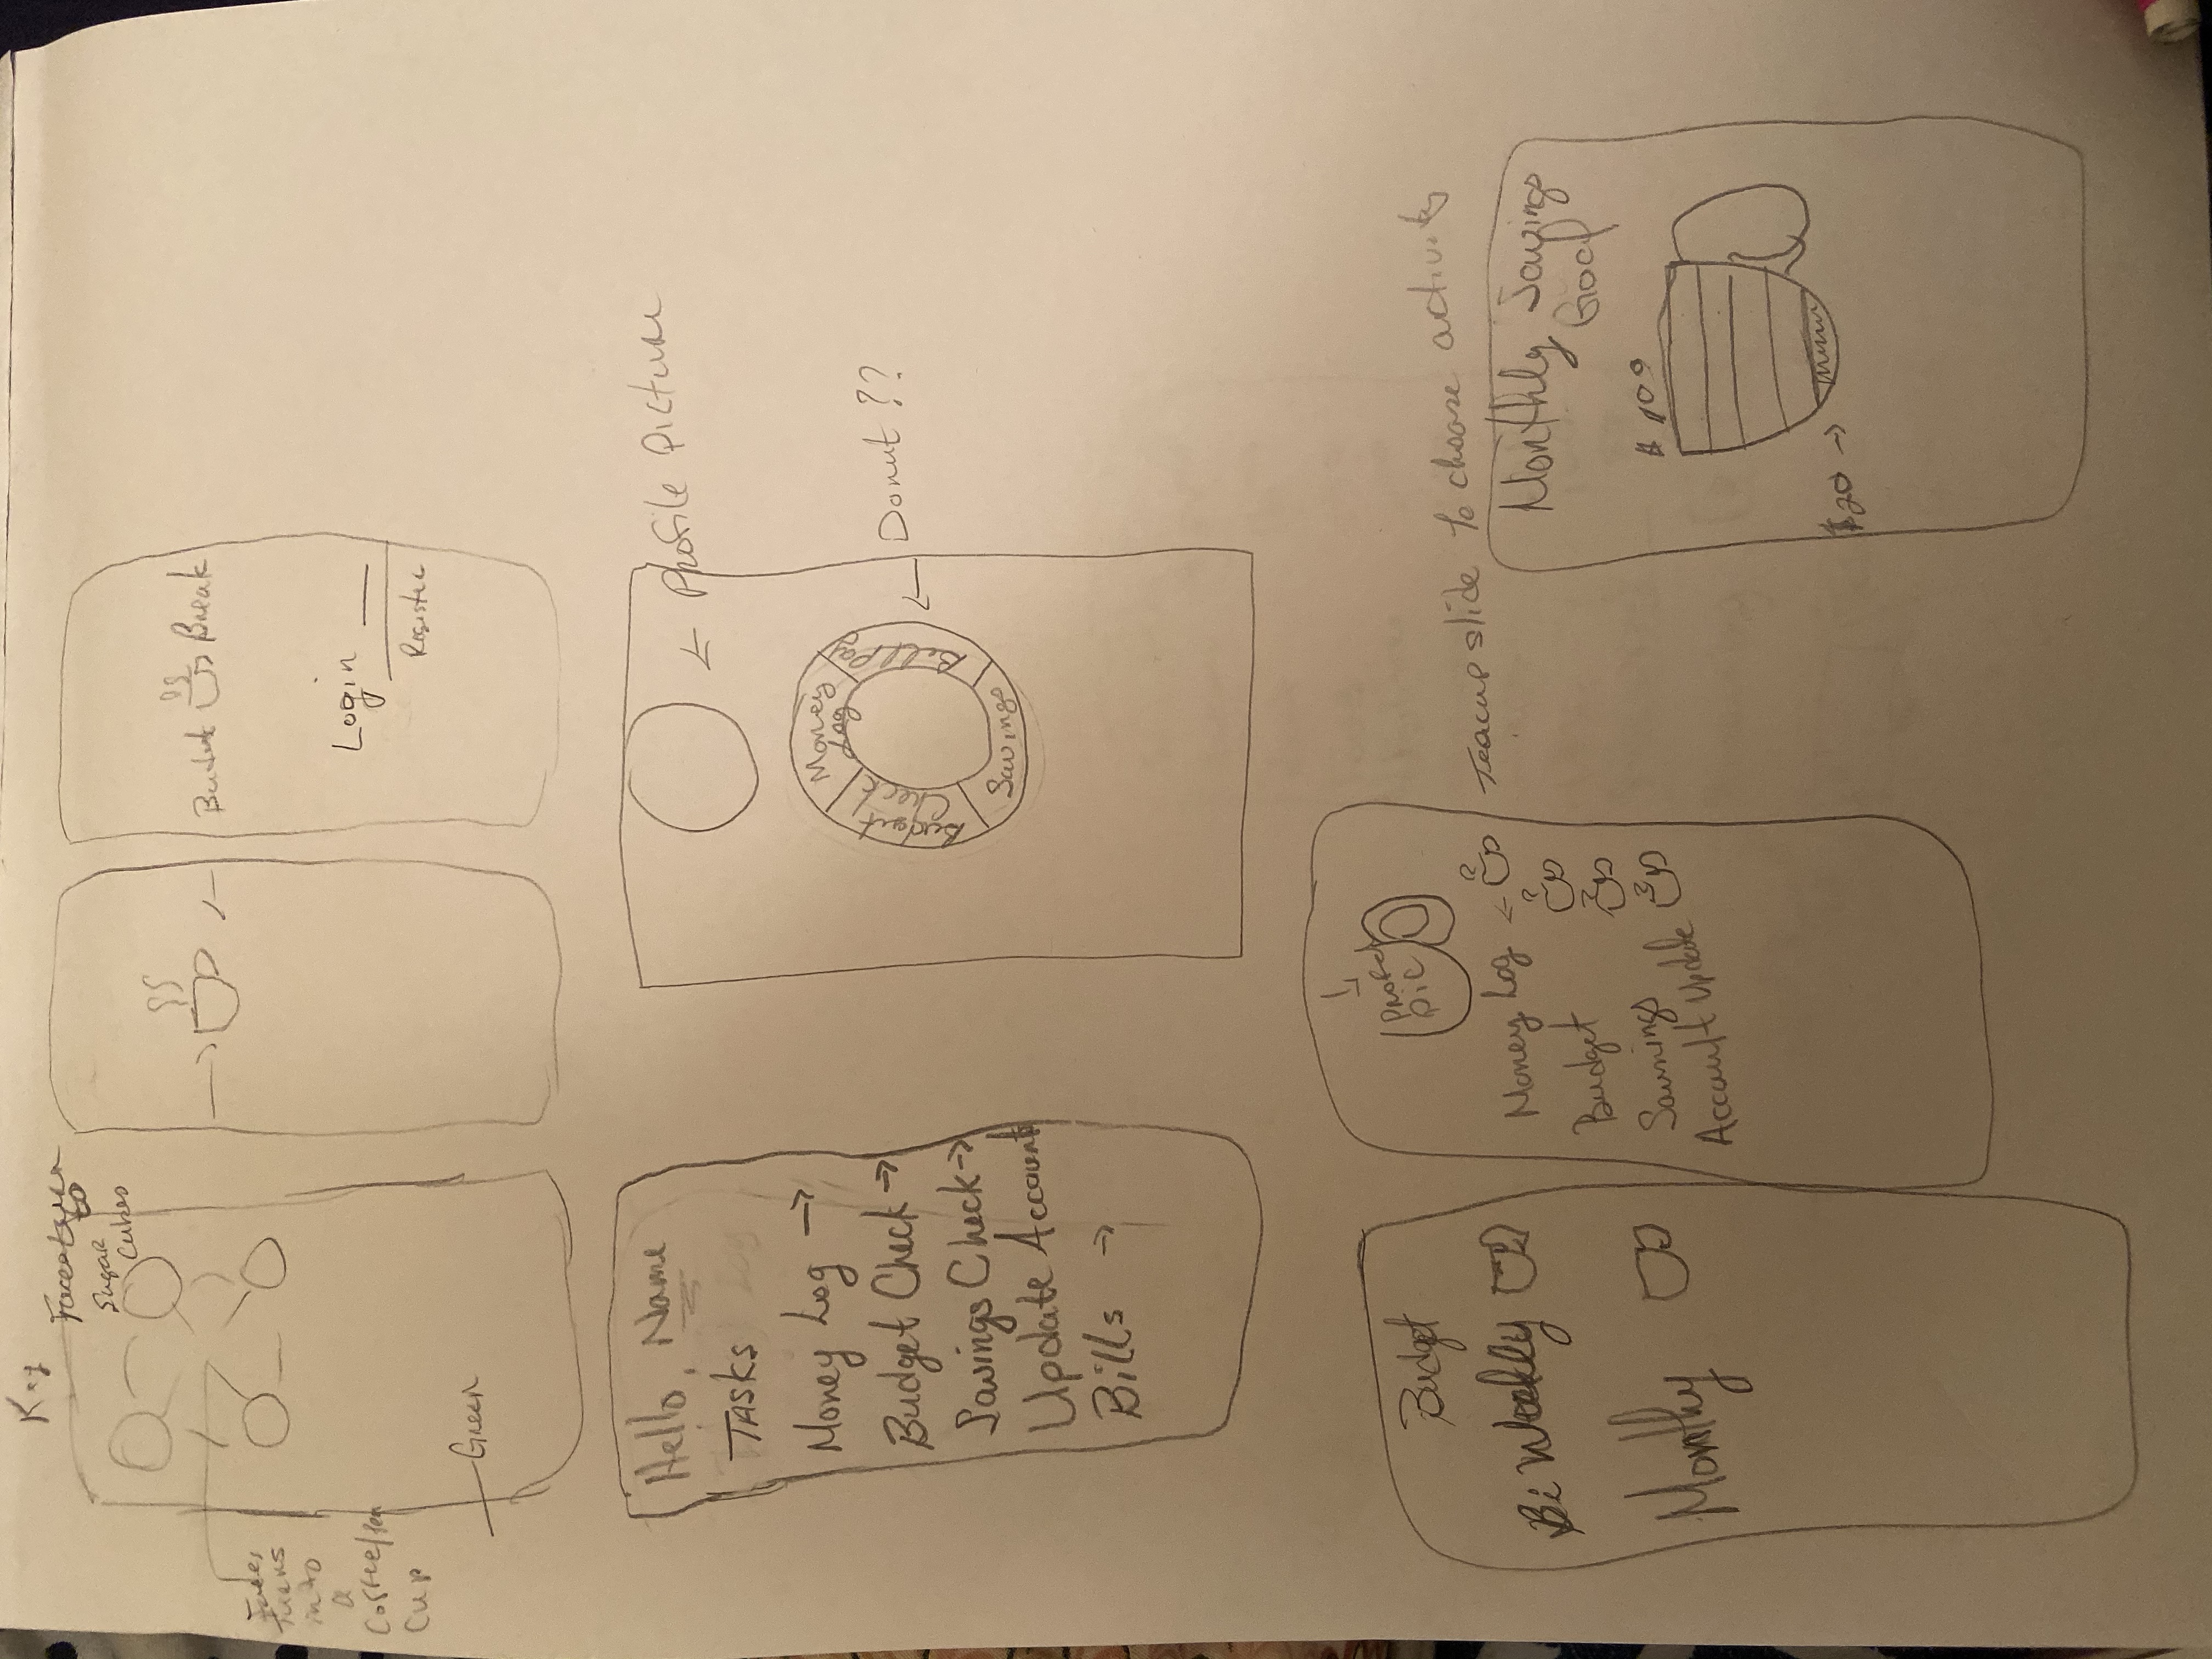 Key
Faces turn
to
Sugar
Cubes
Faces
Turns
into
a
Coffee/Tea
Cup
Green
Budget Break
Login
Register
Hello, Name
TASKS
Money Log →
Budget Check →
Savings Check →
Update Account
Bills →
← Profile Picture
Money
Log
Bill Pay
Budget
Check
Savings
← Donut ??
Budget
Bi Weekly
Monthy
Profil
Pic
Money Log ←
Budget
Savnings
Accault Update
Teacup slide To choose activity
Monthly Savings
Goal
$ 100
$20 →